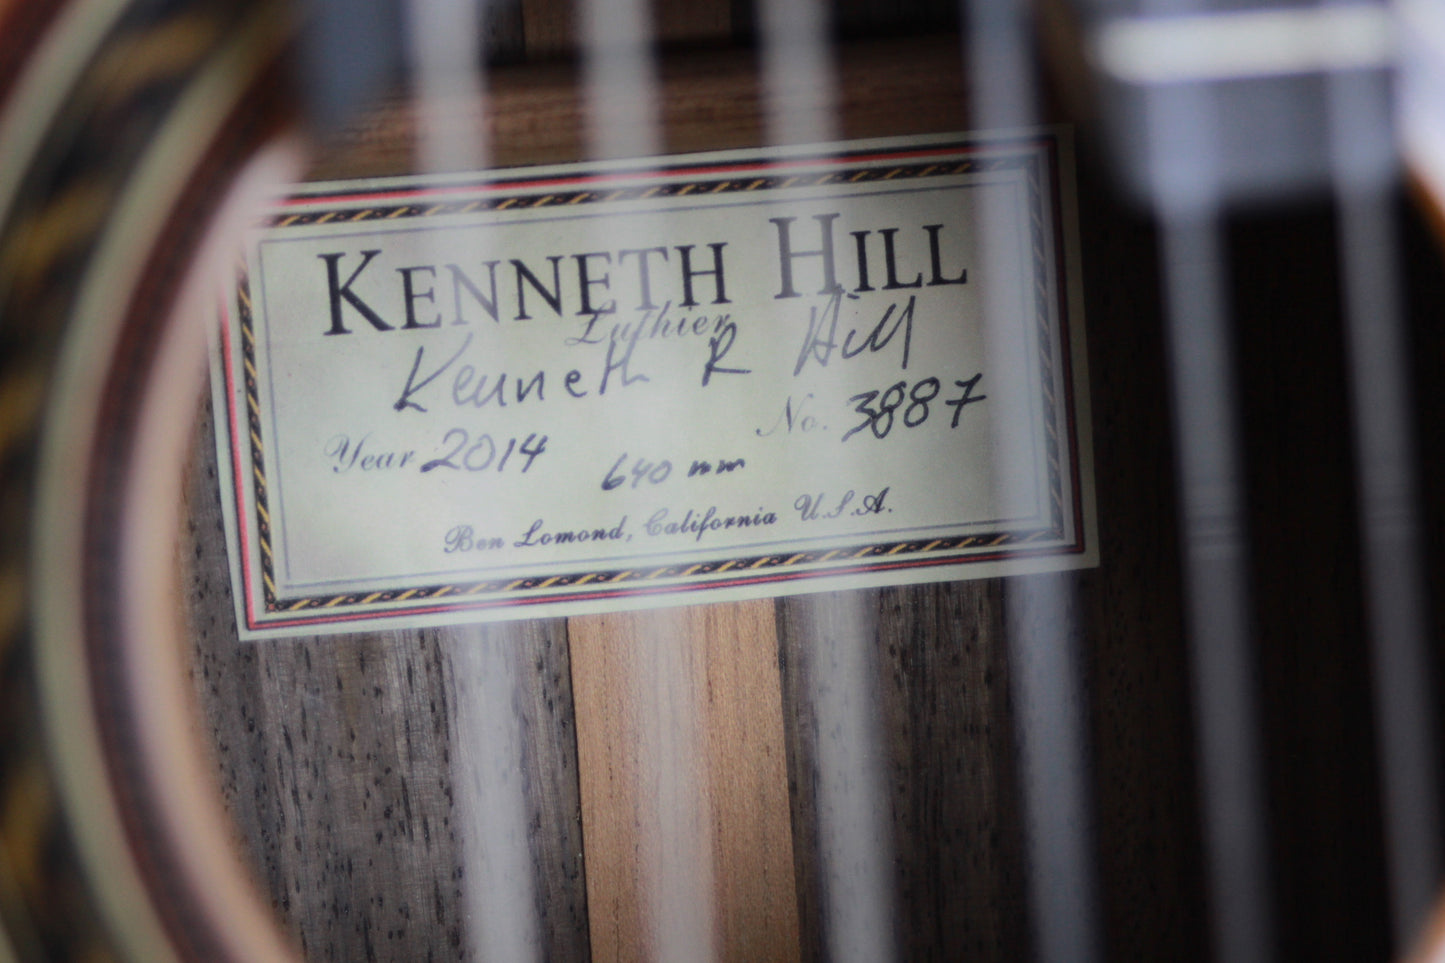 KENNETH HILL
Luthier
Kenneth R Hill
Year 2014 No. 3887
640 mm
Ben Lomond, California U.S.A.